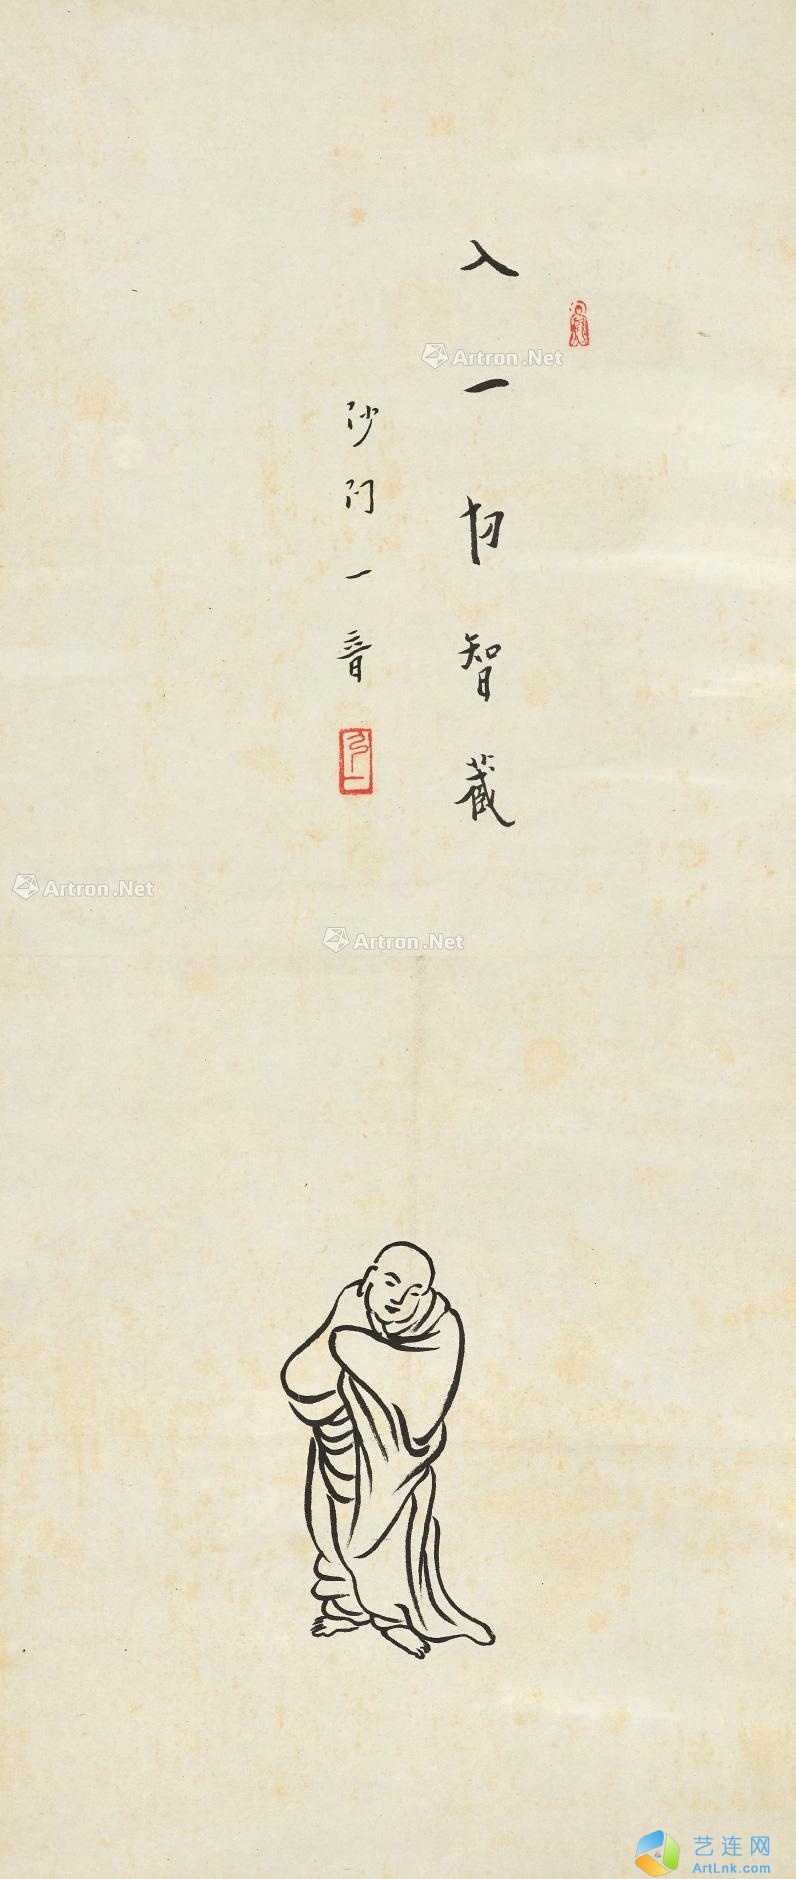 入一切智藏
沙门一音
弘一
Artron.Net
Artron.Net
Artron.Net
艺连网
ArtLnk.com